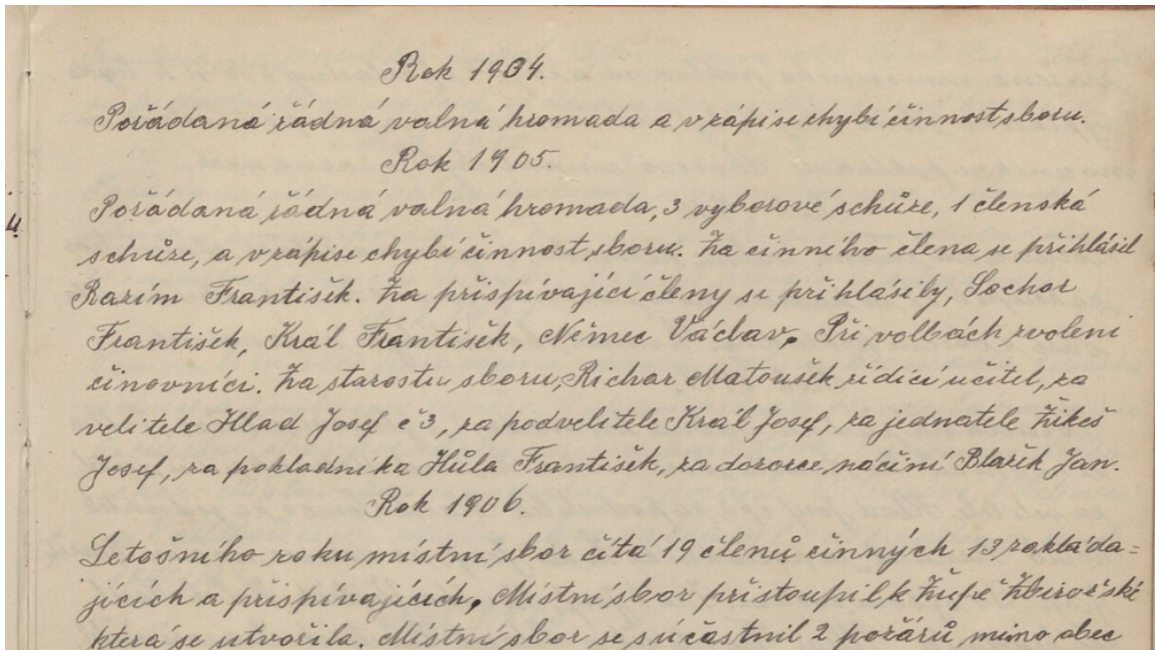 Rok 1904.
Pořádaná řádná valná hromada a v zápise chybí činnost sboru.
Rok 1905.
Pořádaná řádná valná hromada, 3 vyborové schůze, 1 členská
schůze, a v zápise chybí činnost sboru. Za činného člena se přihlásil
Razím František. Za přispívající členy se přihlásily, Sochor
František, Král František, Němec Václav. Při volbách zvoleni
činovníci. Za starostu sboru, Richar Matoušek řídící učitel, za
velitele Hlad Josef č 3, za podvelitele Král Josef, za jednatele Žikeš
Josef, za pokladníka Hůla František, za dozorce náčiní Blažík Jan.
Rok 1906.
Letošního roku místní sbor čítá 19 členů činných 13 zakláda=
jících a přispívajících. Místní sbor přistoupil k Župě Zbirožské
která se utvořila. Místní sbor se súčastnil 2 požárů mimo obec